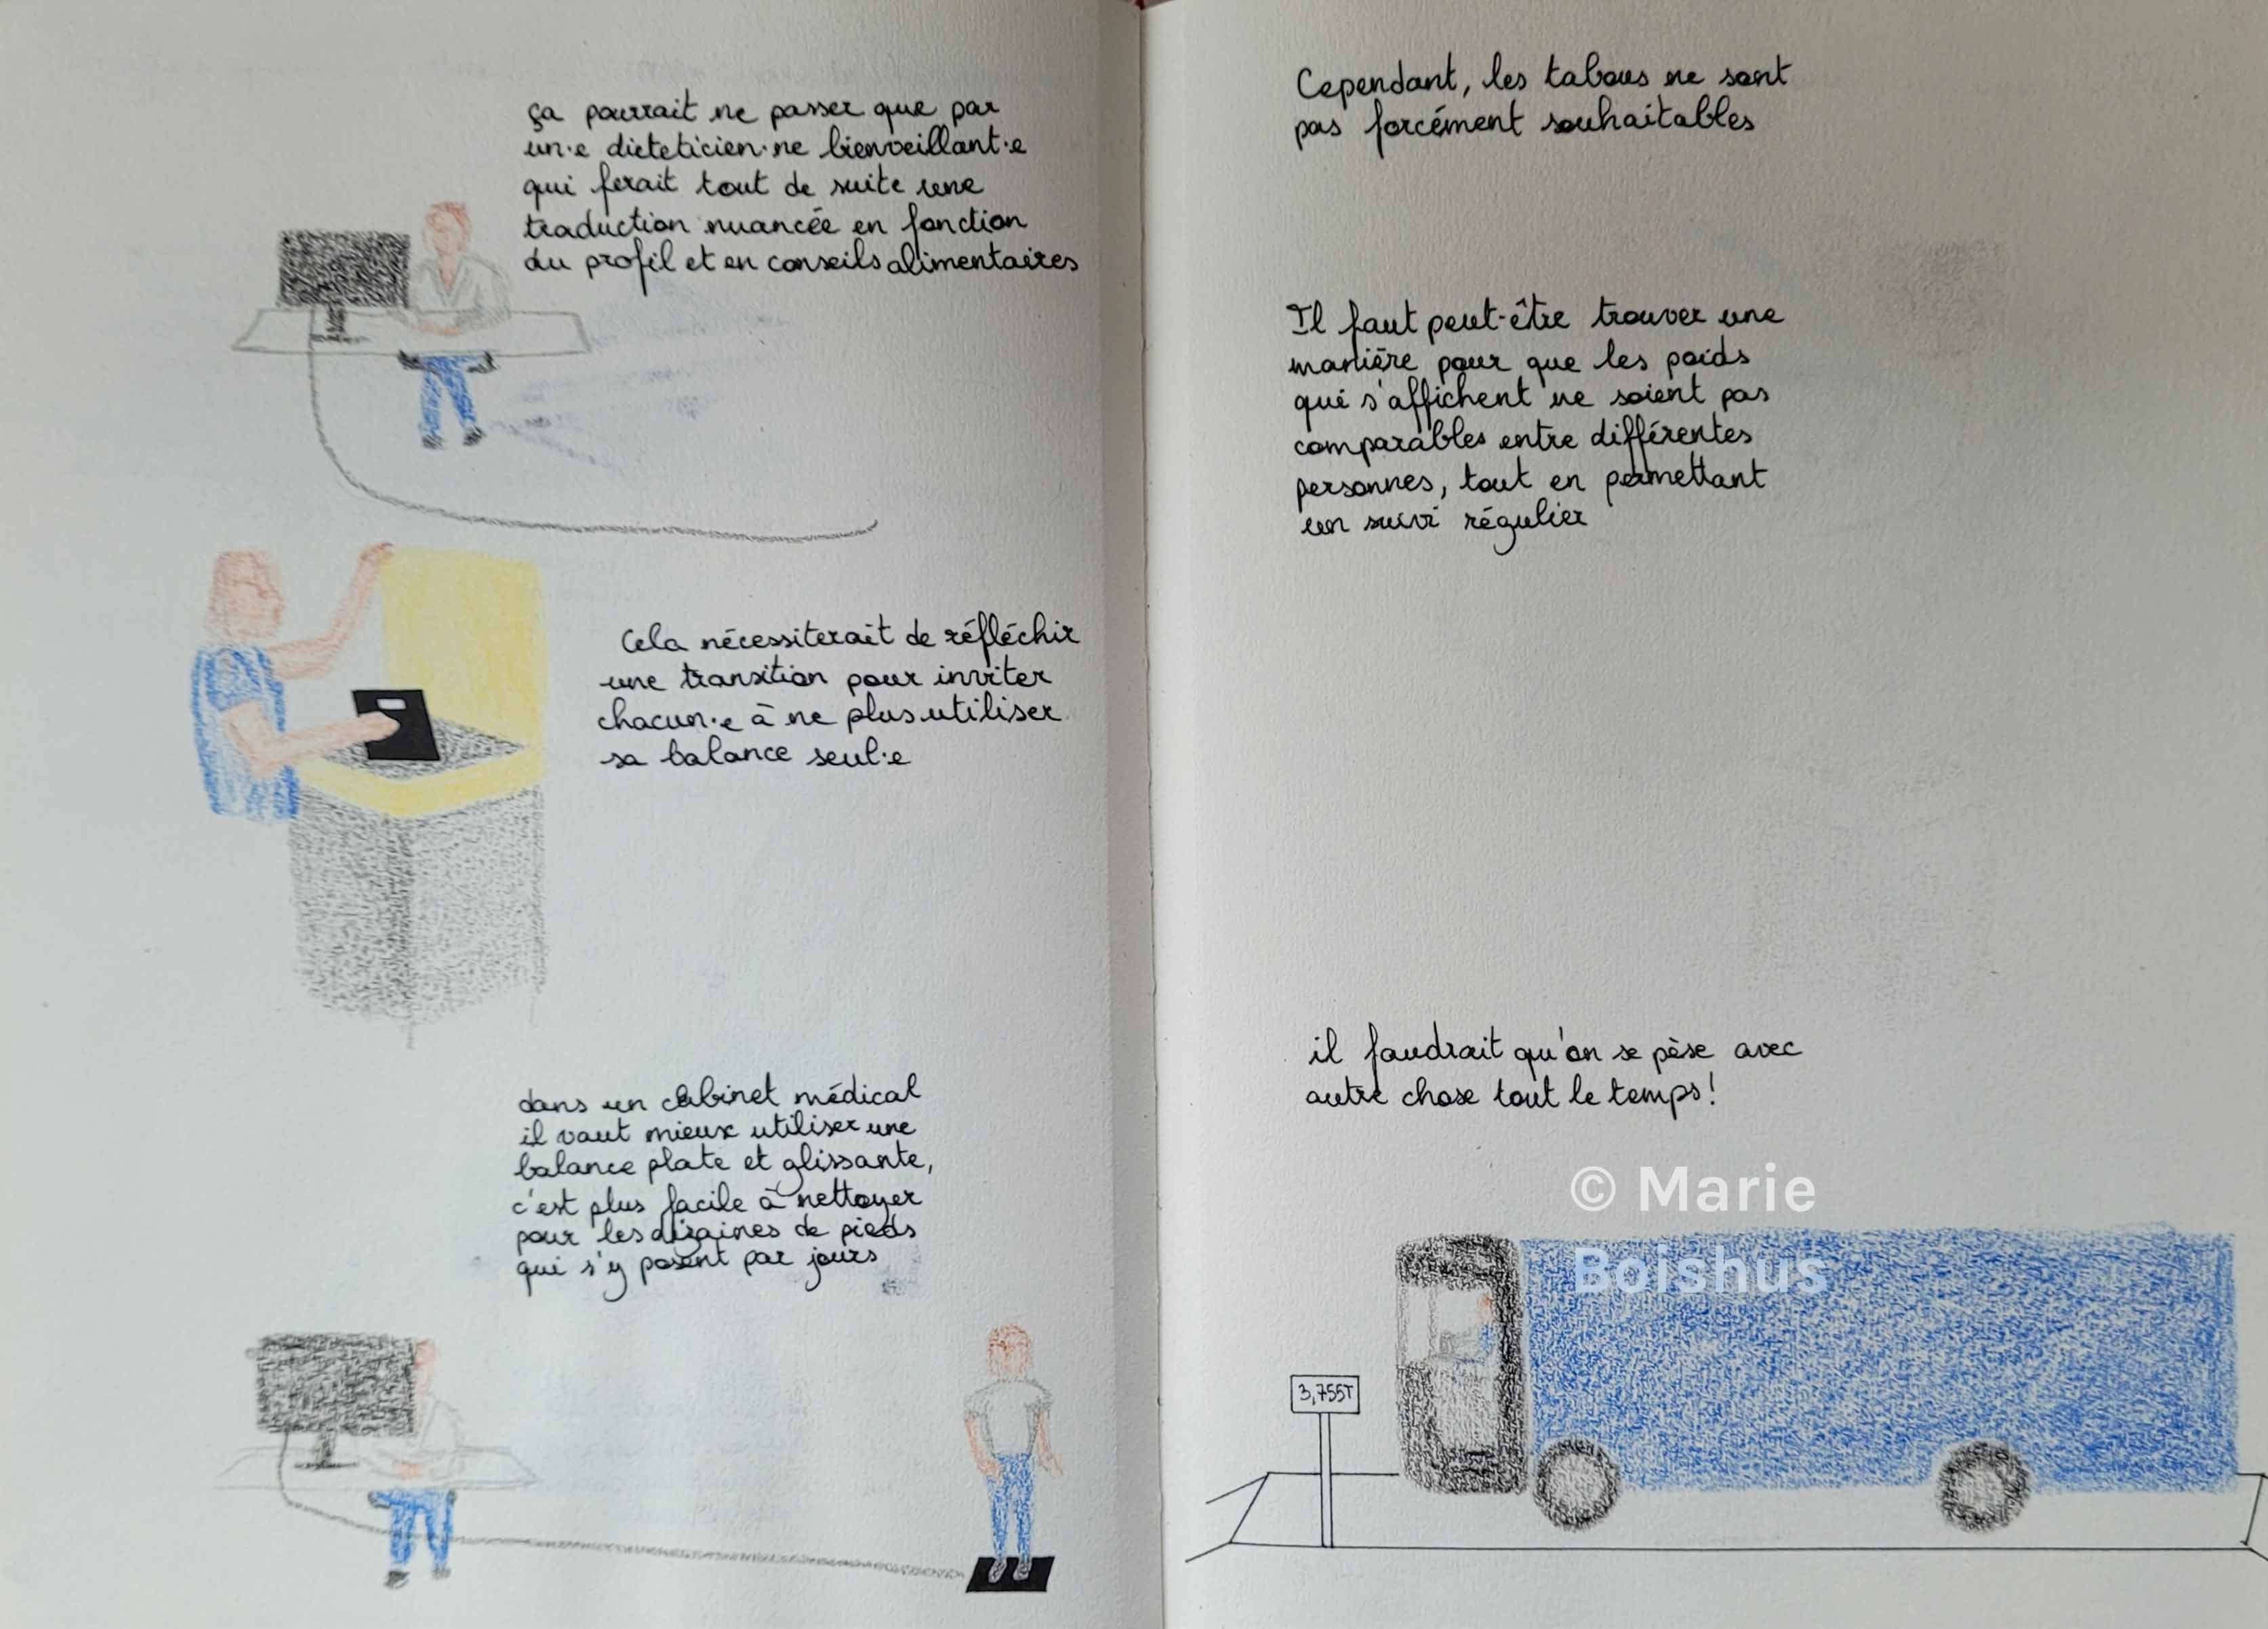 ça pourrait ne passer que par
un·e dieteticien·ne bienveillant·e
qui ferait tout de suite une
traduction nuancée en fonction
du profil et en conseils alimentaires
Cela nécessiterait de réfléchir
une transition pour inviter
chacun·e à ne plus utiliser
sa balance seul·e
dans un cabinet médical
il vaut mieux utiliser une
balance plate et glissante,
c'est plus facile à nettoyer
pour les dizaines de pieds
qui s'y posent par jours
Cependant, les tabous ne sont
pas forcément souhaitables
Il faut peut-être trouver une
manière pour que les poids
qui s'affichent ne soient pas
comparables entre différentes
personnes, tout en permettant
un suivi régulier
il faudrait qu'on se pèse avec
autre chose tout le temps!
© Marie
Boishus
3,755T